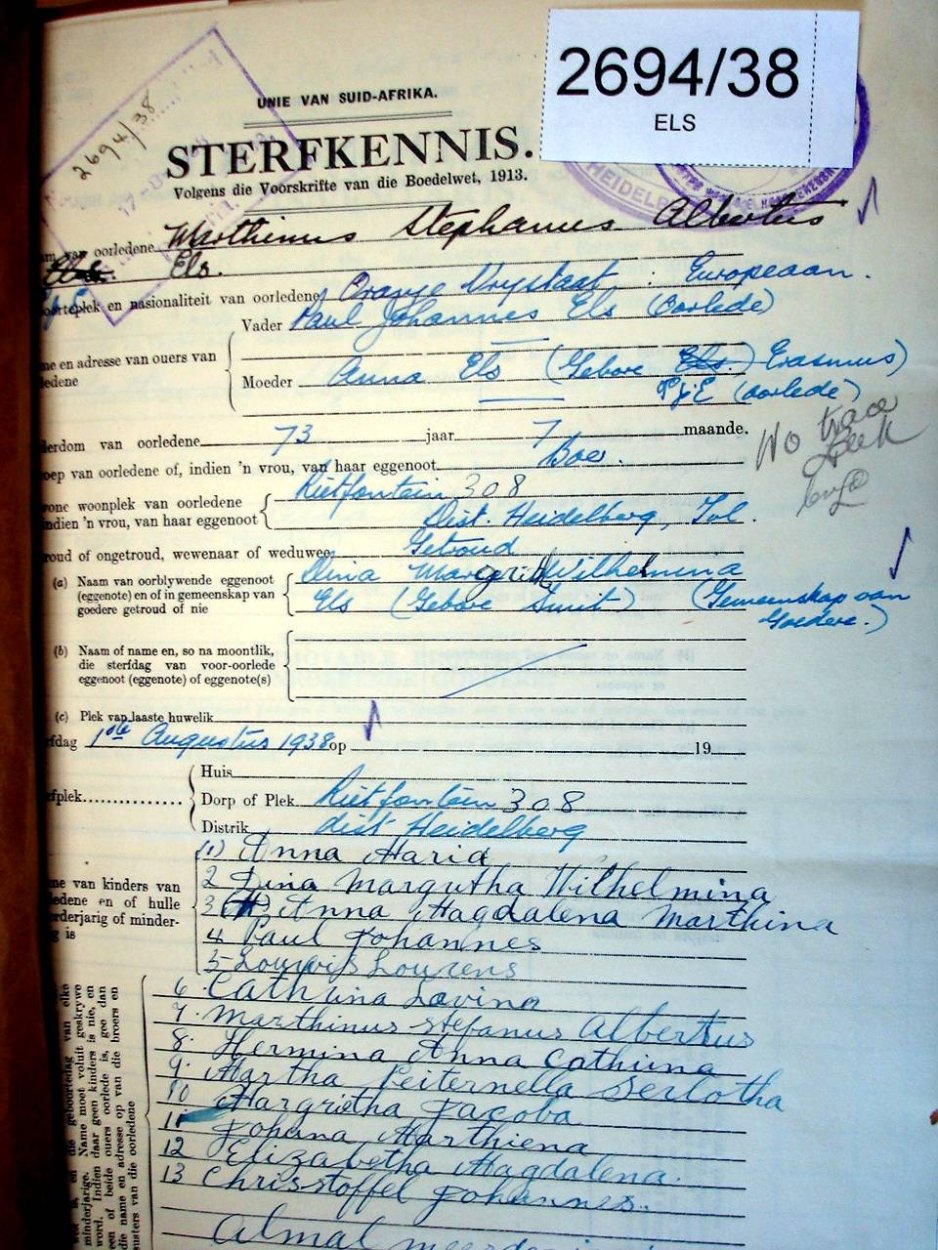 2694/38
ELS
2694/38
HEIDELB
UNIE VAN SUID-AFRIKA.
STERFKENNIS.
Volgens die Voorskrifte van die Boedelwet, 1913.
van oorledene Marthinus Stephanus Albertus
Els.
en nasionaliteit van oorledene Oranje Vrystaat, : Europeaan.
Vader Paul Johannes Els (Oorlede)
me en adresse van ouers van
edene
Moeder Anna Els (Gebore Els.) Erasmus)
P.J.E (oorlede)
derdom van oorledene 73 jaar 7 maande.
No trace
oep van oorledene of, indien 'n vrou, van haar eggenoot Boer.
one woonplek van oorledene
indien 'n vrou, van haar eggenoot Rietfontein 308
Dist. Heidelberg, Tvl.
roud of ongetroud, wewenaar of weduwee Getroud
(a) Naam van oorblywende eggenoot
(eggenote) en of in gemeenskap van
goedere getroud of nie
Dina Margritha Wilhelmina
Els (Gebore Smit) (Gemeenskap van
Goedere.)
(b) Naam of name en, so na moontlik,
die sterfdag van voor-oorlede
eggenoot (eggenote) of eggenote(s)
(c) Plek van laaste huwelik
fdag 1ste Augustus 1938 op 19
Huis
fplek Dorp of Plek Rietfontein 308
Distrik dist Heidelberg
me van kinders van
edene en of hulle
erderjarig of minder-
g is
(1) Anna Maria
2 Dina Margritha Wilhelmina
3 Anna Magdalena Marthina
4 Paul Johannes
5 Louwis Lourens
6. Cathrina Lavina
7. Marthinus Stefanus Albertus
8. Hermina Anna Cathrina
9. Martha Peiternella Serlotha
10 Margrietha Jacoba
11 Johana Marthiena
12 Elizabetha Magdalena.
13 Chrisstoffel Johannes.
Almal
die geboortedag van elke
minderjarige. Name moet voluit geskrywe
word. Indien daar geen kinders is nie, en
een of beide ouers oorlede is, gee dan
die name en adresse op van die broers en
susters van die oorledene